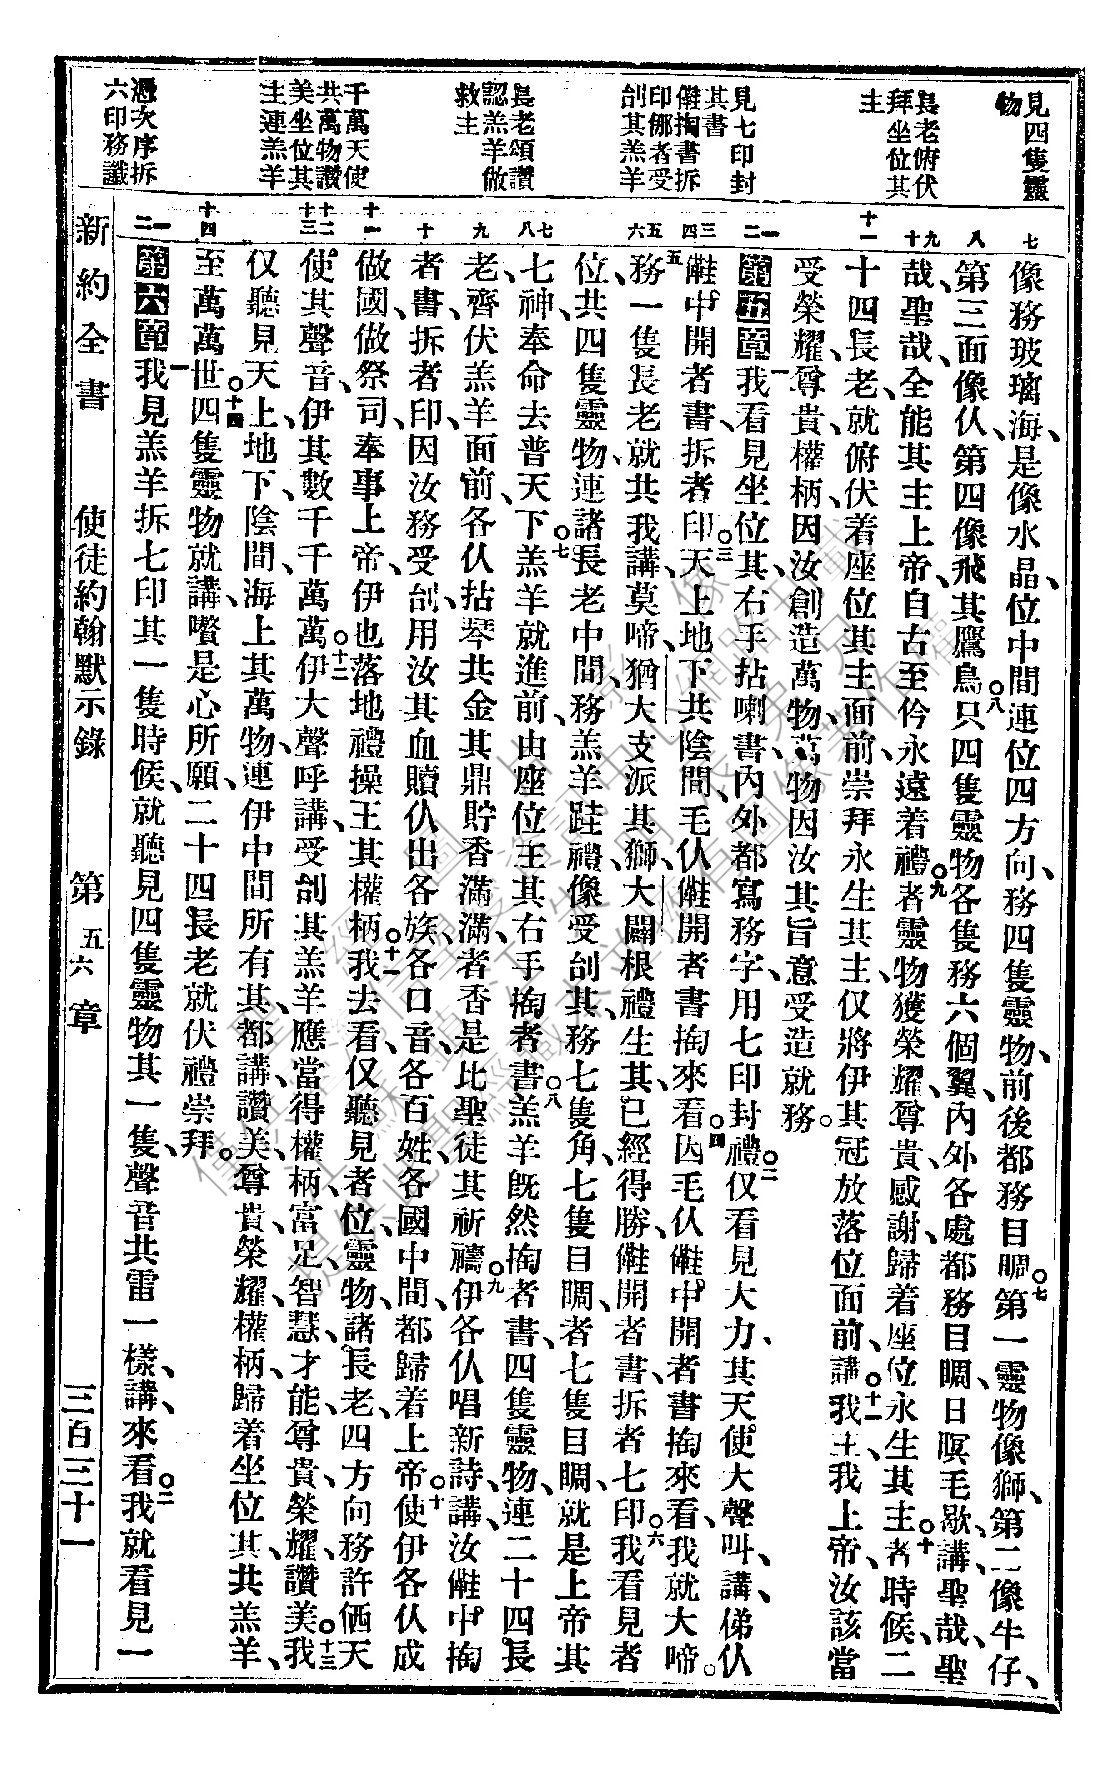 見四隻靈
物
長老俯伏
拜坐位其
主
見七印封
其書
僆掏書拆
印㑚者受
刣其羔羊
長老頌讚
認羔羊做
救主
千萬天使
共萬物讚
美坐位其
主連羔羊
憑次序拆
六印務讖
七
八
九
十
十一
一
二
三
四
五
六
七
八
九
十
十一
十二
十三
十四
一
二
像務玻璃海、是像水晶、位中間連位四方向、務四隻靈物、前後都務目睭。七第一靈物像獅、第二像牛仔、
第三面像仈、第四像飛其鷹鳥。八只四隻靈物、各隻務六個翼、內外各處都務目睭、日暝毛歇、講、聖哉、聖
哉、聖哉、全能其主上帝、自古至仱永遠着禮。九者靈物獲榮耀、尊貴、感謝、歸着座位永生其主。十者時候、二
十四長老、就俯伏着座位其主面前、崇拜永生其主、仅將伊其冠放落位面前、講。十一我主我上帝、汝該當
受榮耀、尊貴、權柄、因汝創造萬物、萬物因汝其旨意受造就務。
第五章一我看見坐位其、右手拈喇書、內外都寫務字、用七印封禮。二仅看見大力其天使大聲叫、講、俤仈
僆中開者書、拆者印。三天上、地下、共陰間、毛仈僆開者書、掏來看。四因毛仈僆中開者書掏來看、我就大啼。
五務一隻長老就共我講、莫啼、猶大支派其獅、大闢根禮生其、已經得勝、僆開者書、拆者七印。六我看見者
位、共四隻靈物、連諸長老中間、務羔羊跬禮、像受刣其、務七隻角、七隻目睭、者七隻目睭、就是上帝其
七神、奉命去普天下。七羔羊就進前、由座位主其右手、掏者書。八羔羊旣然掏者書、四隻靈物、連二十四長
老、齊伏羔羊面前、各仈拈琴、共金其鼎、貯香滿滿、者香是比聖徒其祈禱。九伊各仈唱新詩、講、汝僆中掏
者書、拆者印、因汝務受刣、用汝其血、贖仈出各族、各口音、各百姓、各國中間、都歸着上帝。十使伊各仈成
做國、做祭司、奉事上帝、伊也落地禮操王其權柄。十一我去看、仅聽見者位、靈物、諸長老、四方向、務許価天
使、其聲音、伊其數千千萬萬。十二伊大聲呼、講、受刣其羔羊、應當得權柄、富足、智慧、才能、尊貴、榮耀、讚美。十三我
仅聽見天上、地下、陰間、海上其萬物、連伊中間所有其、都講、讚美、尊貴、榮耀、權柄、歸着坐位其、共羔羊、
至萬萬世。十四四隻靈物就講、嚽是心所願、二十四長老就伏禮崇拜。
第六章一我見羔羊拆七印其一隻時候、就聽見四隻靈物其一隻、聲音共雷一樣、講、來看。二我就看見一
新約全書
使徒約翰默示錄
第五六章
三百三十一